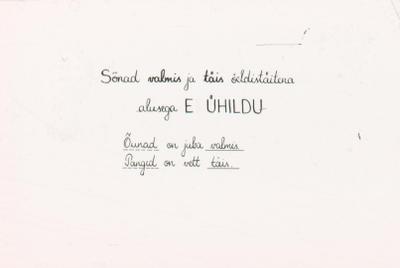 Sõnad valmis ja täis öeldistäitena
alusega E ÜHILDU
Õunad on juba valmis
Pangid on vett täis.